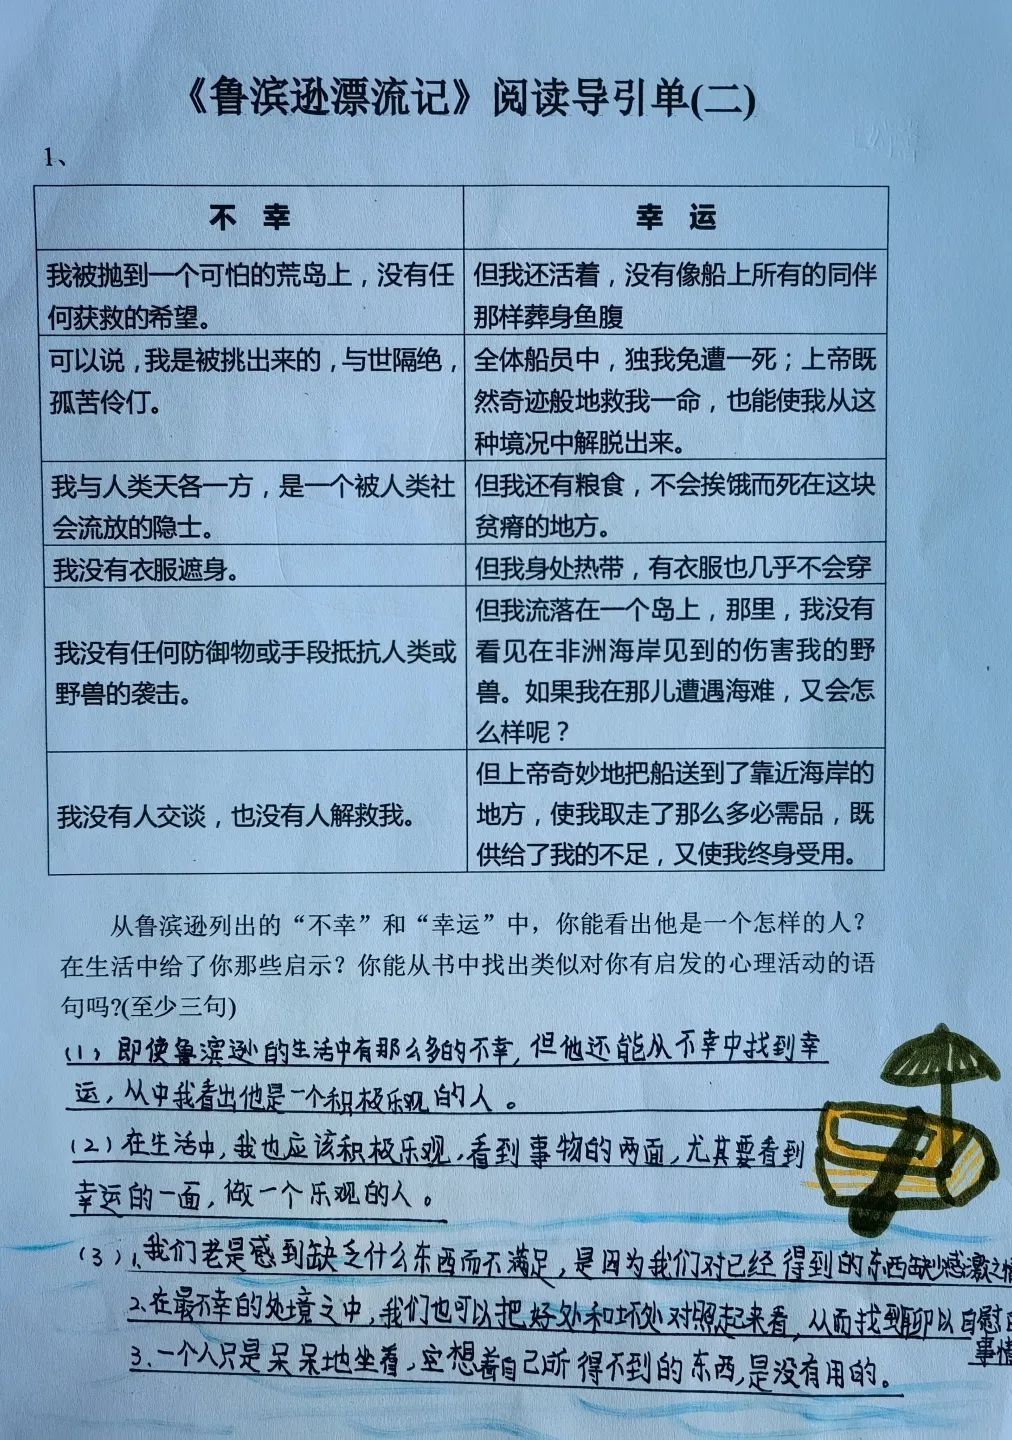 《鲁滨逊漂流记》阅读导引单(二)
1、
不 幸
幸 运
我被抛到一个可怕的荒岛上，没有任
何获救的希望。
但我还活着，没有像船上所有的同伴
那样葬身鱼腹
可以说，我是被挑出来的，与世隔绝，
孤苦伶仃。
全体船员中，独我免遭一死；上帝既
然奇迹般地救我一命，也能使我从这
种境况中解脱出来。
我与人类天各一方，是一个被人类社
会流放的隐士。
但我还有粮食，不会挨饿而死在这块
贫瘠的地方。
我没有衣服遮身。
但我身处热带，有衣服也几乎不会穿
我没有任何防御物或手段抵抗人类或
野兽的袭击。
但我流落在一个岛上，那里，我没有
看见在非洲海岸见到的伤害我的野
兽。如果我在那儿遭遇海难，又会怎
么样呢？
我没有人交谈，也没有人解救我。
但上帝奇妙地把船送到了靠近海岸的
地方，使我取走了那么多必需品，既
供给了我的不足，又使我终身受用。
从鲁滨逊列出的“不幸”和“幸运”中，你能看出他是一个怎样的人？
在生活中给了你那些启示？你能从书中找出类似对你有启发的心理活动的语
句吗?(至少三句)
(1) 即使鲁滨逊的生活中有那么多的不幸，但他还能从不幸中找到幸
运，从中我看出他是一个积极乐观的人。
(2) 在生活中，我也应该积极乐观，看到事物的两面，尤其要看到
幸运的一面，做一个乐观的人。
(3) 1、我们老是感到缺乏什么东西而不满足，是因为我们对已经得到的东西缺少感激之情
2、在最不幸的处境之中，我们也可以把好处和坏处对照起来看，从而找到聊以自慰的
事情
3、一个人只是呆呆地坐着，空想着自己所得不到的东西，是没有用的。